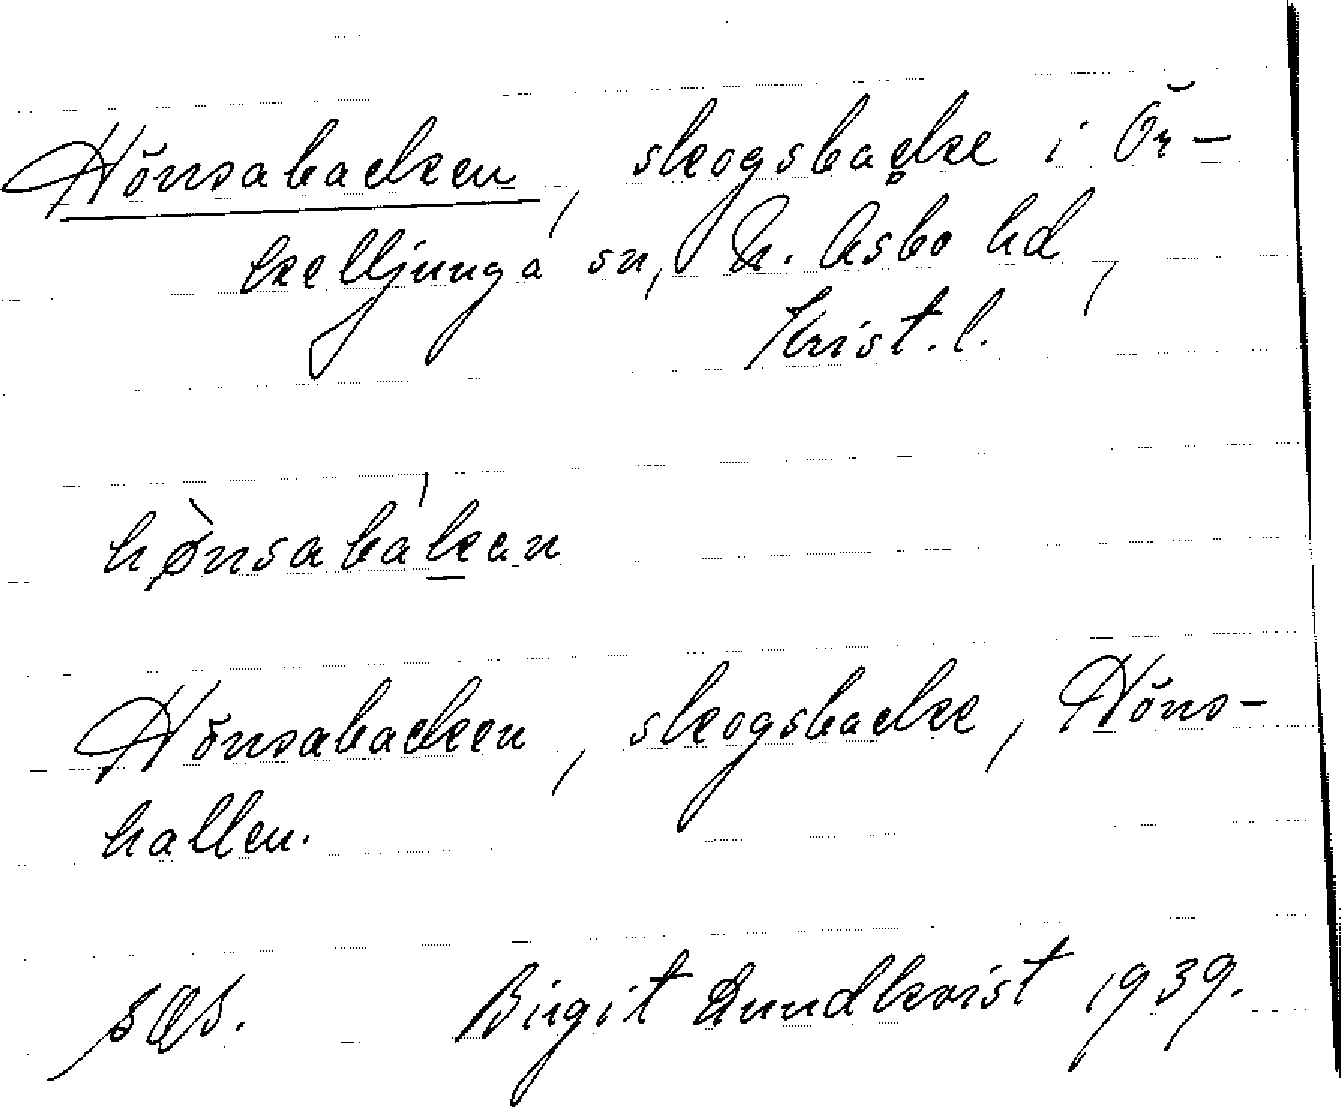 Hönsabacken, skogsbacke i Ör-
kelljunga sn, N. Åsbo hd,
Krist. l.
hø̀nsabákean
Hönsabacken, skogsbacke, Höns-
hallen.
Birgit Lundkvist 1939.